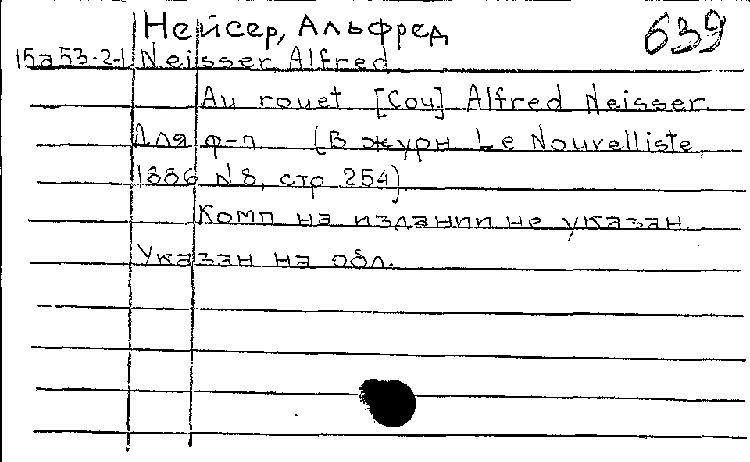 Нейсер, Альфред 639
15а53-2-1 Neisser Alfred
Au rouet [Соч] Alfred Neisser.
Для ф-п (В журн Le Nouvelliste,
1886 N8, стр 254)
Комп на издании не указан.
Указан на обл.